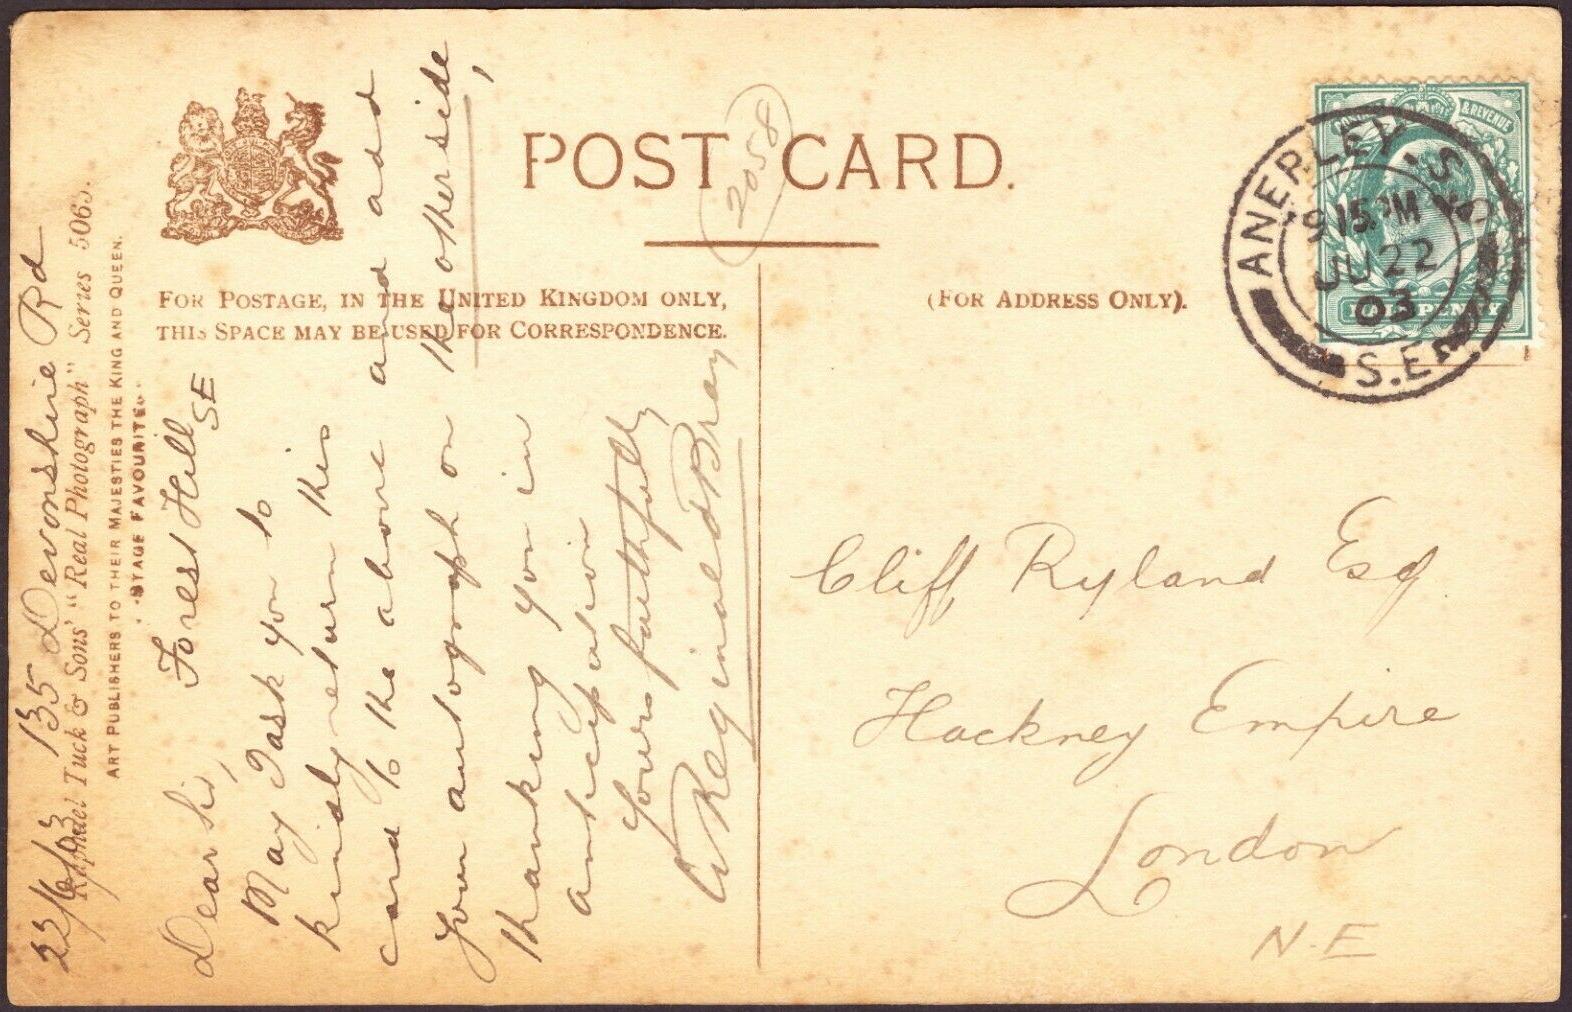 POST CARD.
2058
FOR POSTAGE, IN THE UNITED KINGDOM ONLY,
THIS SPACE MAY BE USED FOR CORRESPONDENCE.
(FOR ADDRESS ONLY).
Raphael Tuck & Sons' "Real Photograph" Series 5063.
ART PUBLISHERS TO THEIR MAJESTIES THE KING AND QUEEN.
"STAGE FAVOURITES"
22/6/03 135 Devonshire Rd
Forest Hill
SE
Dear Sir,
May I ask you to
kindly return this
card to the above and add
your autograph on the other side,
thanking you in
anticipation
Yours faithfully
W Reginald Bray
Cliff Ryland Esq
Hackney Empire
London
N.E
& REVENUE
HALFPENNY
ANERLEY. S.O
9 15.PM
JU 22
03
S.E.